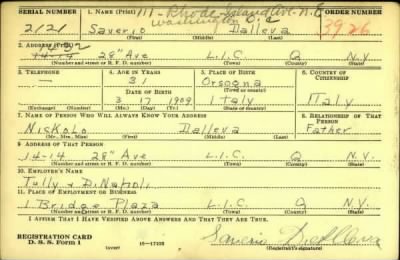 SERIAL NUMBER 1. NAME (Print) 111 - Rhode Island Ave. N.E. ORDER NUMBER
Washington D.C.
2121 Saverio Dalleva 3926
(First) (Middle) (Last)
2. ADDRESS (Print)
14-14 28th Ave L.I.C. Q N.Y.
(Number and street or R. F. D. number) (Town) (County) (State)
3. TELEPHONE 4. AGE IN YEARS 5. PLACE OF BIRTH 6. COUNTRY OF CITIZENSHIP
— 31 Orsogna
DATE OF BIRTH (Town or county)
3 17 1909 Italy Italy
(Exchange) (Number) (Mo.) (Day) (Yr.) (State or country)
7. NAME OF PERSON WHO WILL ALWAYS KNOW YOUR ADDRESS 8. RELATIONSHIP OF THAT PERSON
Nickolo Dalleva Father
(Mr., Mrs., Miss) (First) (Middle) (Last)
9. ADDRESS OF THAT PERSON
14-14 28th Ave L.I.C. Q N.Y.
(Number and street or R. F. D. number) (Town) (County) (State)
10. EMPLOYER'S NAME
Tully & DiNapoli
11. PLACE OF EMPLOYMENT OR BUSINESS
1 Bridge Plaza L.I.C. Q N.Y.
(Number and street or R. F. D. number) (Town) (County) (State)
I AFFIRM THAT I HAVE VERIFIED ABOVE ANSWERS AND THAT THEY ARE TRUE.
REGISTRATION CARD
D. S. S. Form 1 (over) 16—17105